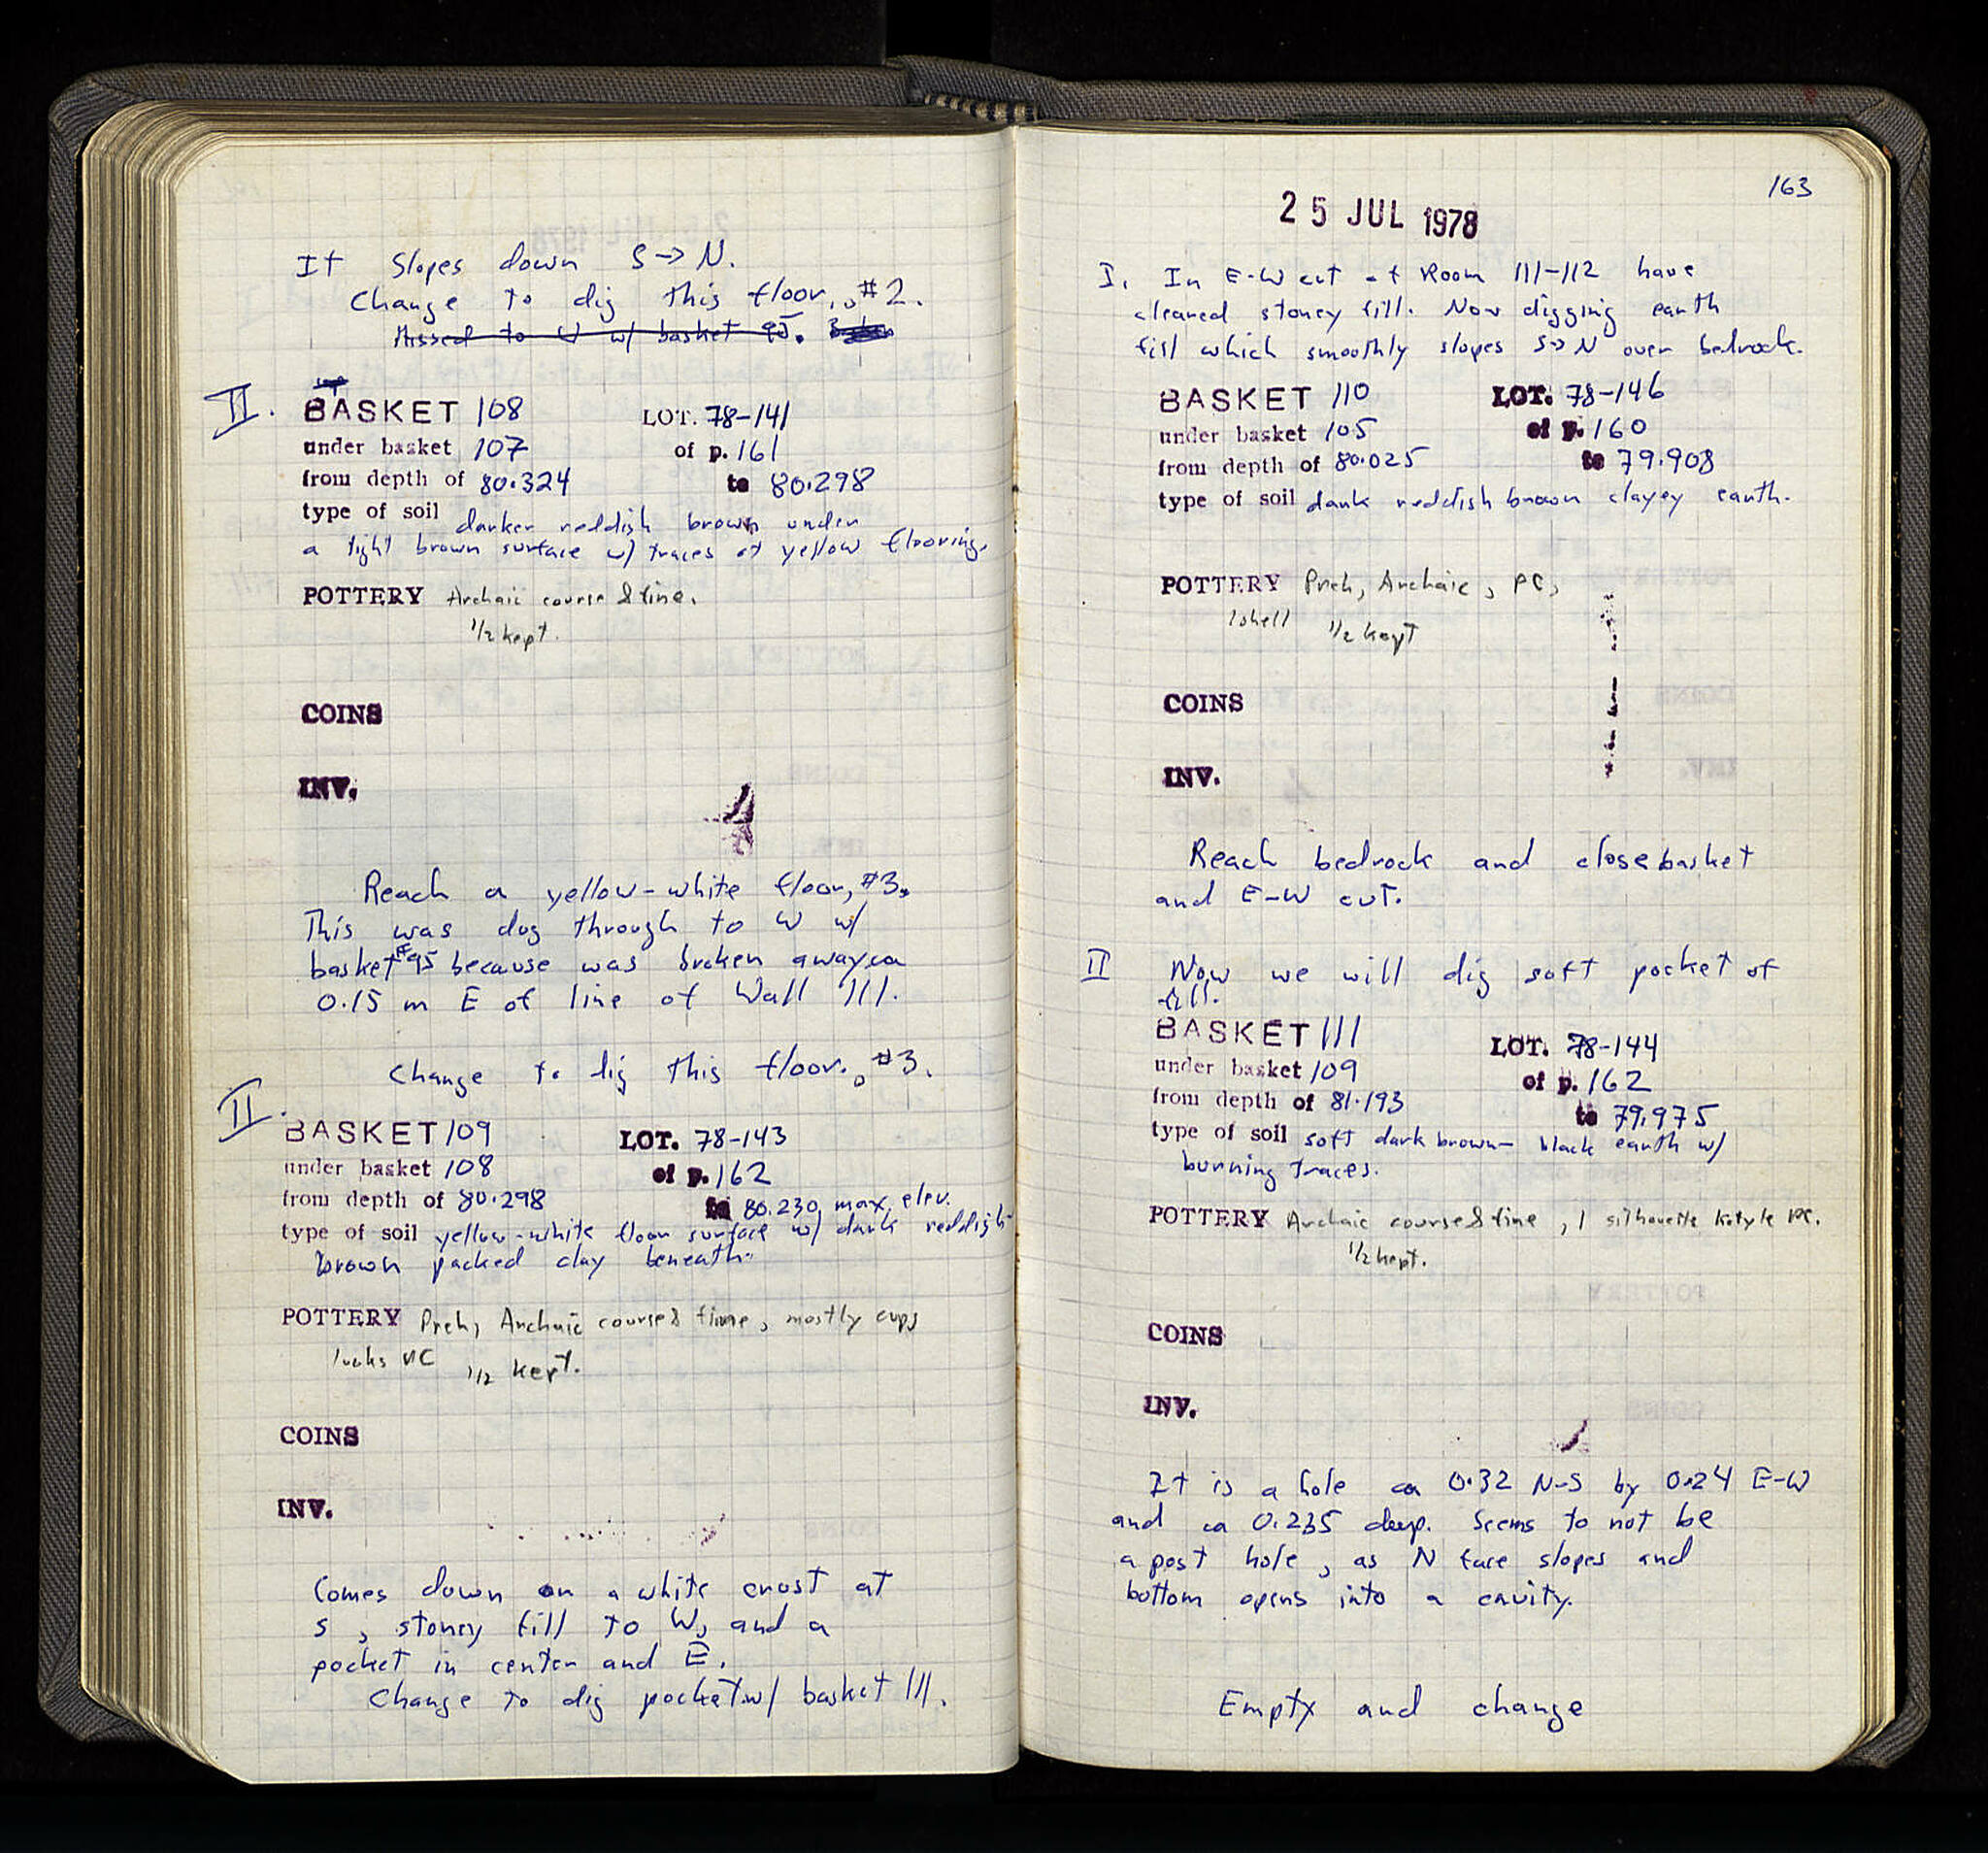 It slopes down S→N.
Change to dig this floor, #2.
Missed to W w/ basket 95.
II.
BASKET 108 LOT. 78-141
under basket 107 of p. 161
from depth of 80.324 to 80.298
type of soil darker reddish brown under
a light brown surface w/ traces of yellow flooring.
POTTERY Archaic course & fine.
1/2 kept.
COINS
INV.
Reach a yellow-white floor, #3.
This was dug through to W w/
basket #95 because was broken away ca
0.15 m E of line of Wall 111.
Change to dig this floor, #3.
II.
BASKET 109 LOT. 78-143
under basket 108 of p. 162
from depth of 80.298 to 80.230 max. elev.
type of soil yellow-white floor surface w/ dark reddish
brown packed clay beneath.
POTTERY Preh, Archaic course & fine, mostly cups
looks MC 1/2 kept.
COINS
INV.
Comes down on a white crust at
S, stoney fill to W, and a
pocket in center and E.
Change to dig pocket w/ basket 111.
163
25 JUL 1978
I. In E-W cut of Room 111-112 have
cleared stoney fill. Now digging earth
fill which smoothly slopes S→N over bedrock.
BASKET 110 LOT. 78-146
under basket 105 of p. 160
from depth of 80.025 to 79.908
type of soil dark reddish brown clayey earth.
POTTERY Preh, Archaic, PC,
1 shell 1/2 kept
COINS
INV.
Reach bedrock and close basket
and E-W cut.
II Now we will dig soft pocket of
fill.
BASKET 111 LOT. 78-144
under basket 109 of p. 162
from depth of 81.193 to 79.975
type of soil soft dark brown-black earth w/
burning traces.
POTTERY Archaic course & fine, 1 silhouette kotyle PC.
1/2 kept.
COINS
INV.
It is a hole ca 0.32 N-S by 0.24 E-W
and ca 0.235 deep. Seems to not be
a post hole, as N face slopes and
bottom opens into a cavity.
Empty and change